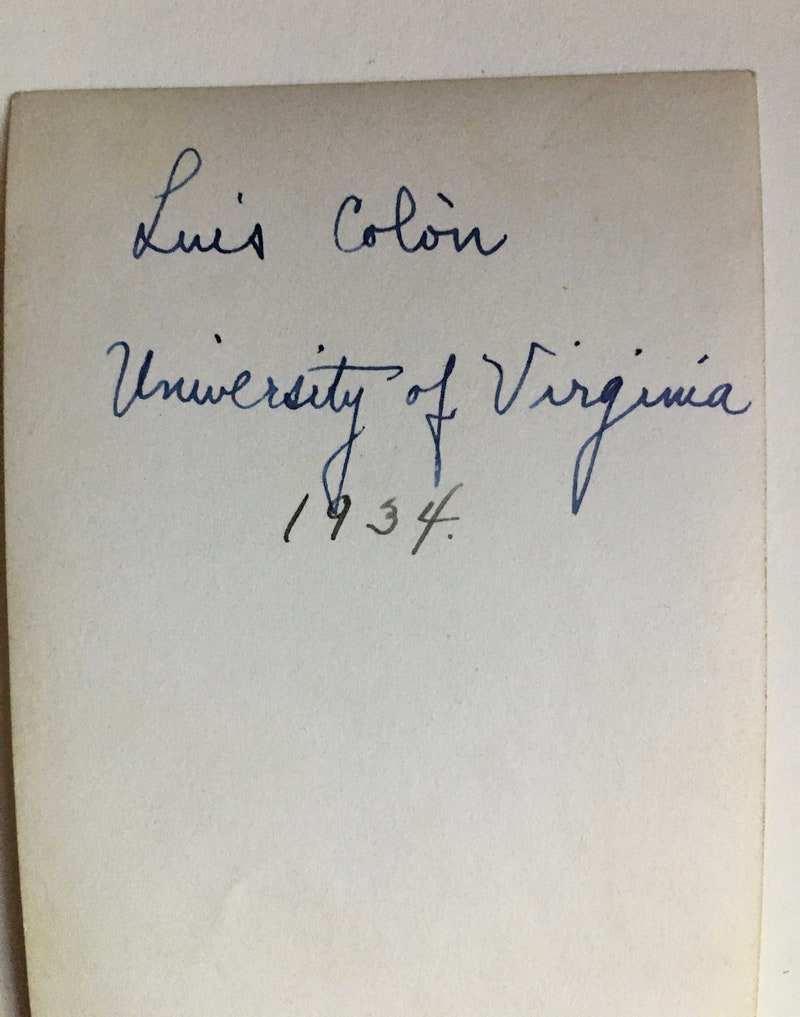 Luis Colòn
University of Virginia
1934.